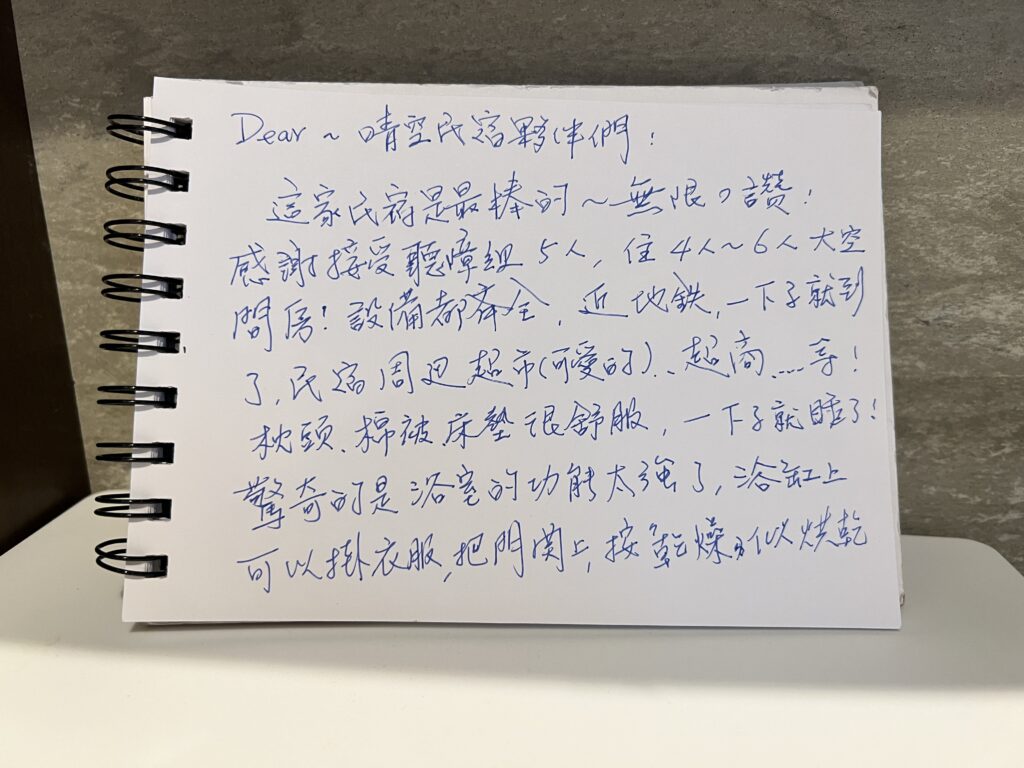 Dear～晴空民宿夥伴們：
這家民宿是最棒的～無限の讚！
感謝接受聽障組5人，住4人～6人大空
間房！設備都齊全，近地鉄，一下子就到
了，民宿周边超市(可愛的)、超商.....等！
枕頭、棉被床墊很舒服，一下子就睡了！
驚奇的是浴室的功能太強了，浴缸上
可以掛衣服，把門関上，按乾燥 似烘乾